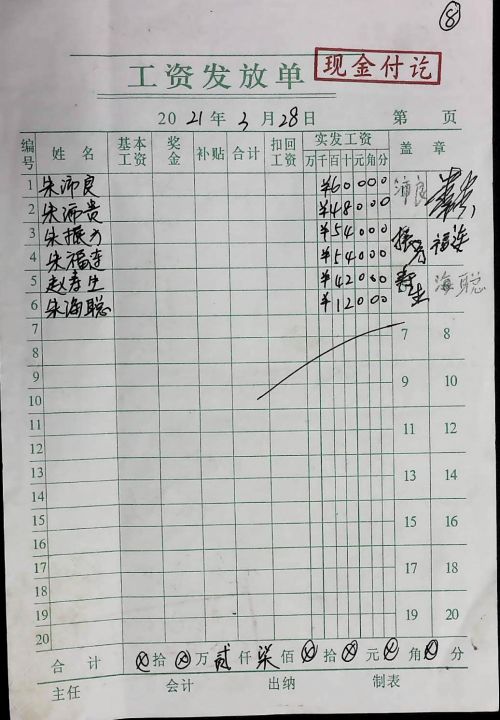 ⑧
工资发放单 现金付讫
2021年3月28日 第 页
编号 姓名 基本工资 奖金 补贴 合计 扣回工资 实发工资 盖章
万千百十元角分
1 朱沛良 ¥60000 沛良
2 朱沛贵 ¥48000
3 朱振方 ¥54000 振方
4 朱福连 ¥54000 福连
5 赵寿生 ¥42000 寿生
6 朱海聪 ¥12000 海聪
7 7 8
8
9 9 10
10
11 11 12
12
13 13 14
14
15 15 16
16
17 17 18
18
19 19 20
20
合计 ⊗拾⊗万贰仟柒佰⊗拾⊗元⊗角⊗分
主任 会计 出纳 制表